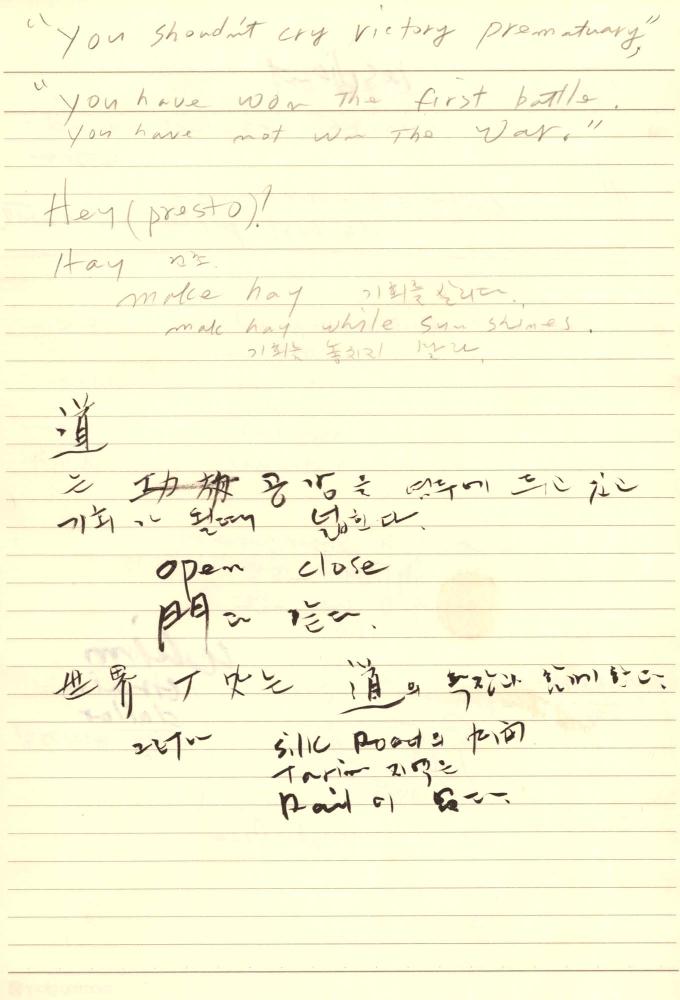 "You shoudn't cry victory prematuary",
"You have won The first battle.
You have not wn The War."
Hey (presto)!
Hay 건초.
make hay 기회를 살리다.
mak hay while sun shines.
기회는 놓치지 말라.
道
는 공감을 염두에 두고
기회가 될때 넓힌다.
open close
門과 같다.
世界 는 道의 확장과 함께 한다.
그러나 silk Road의
Tarim 지역은
Rail 이 없다.